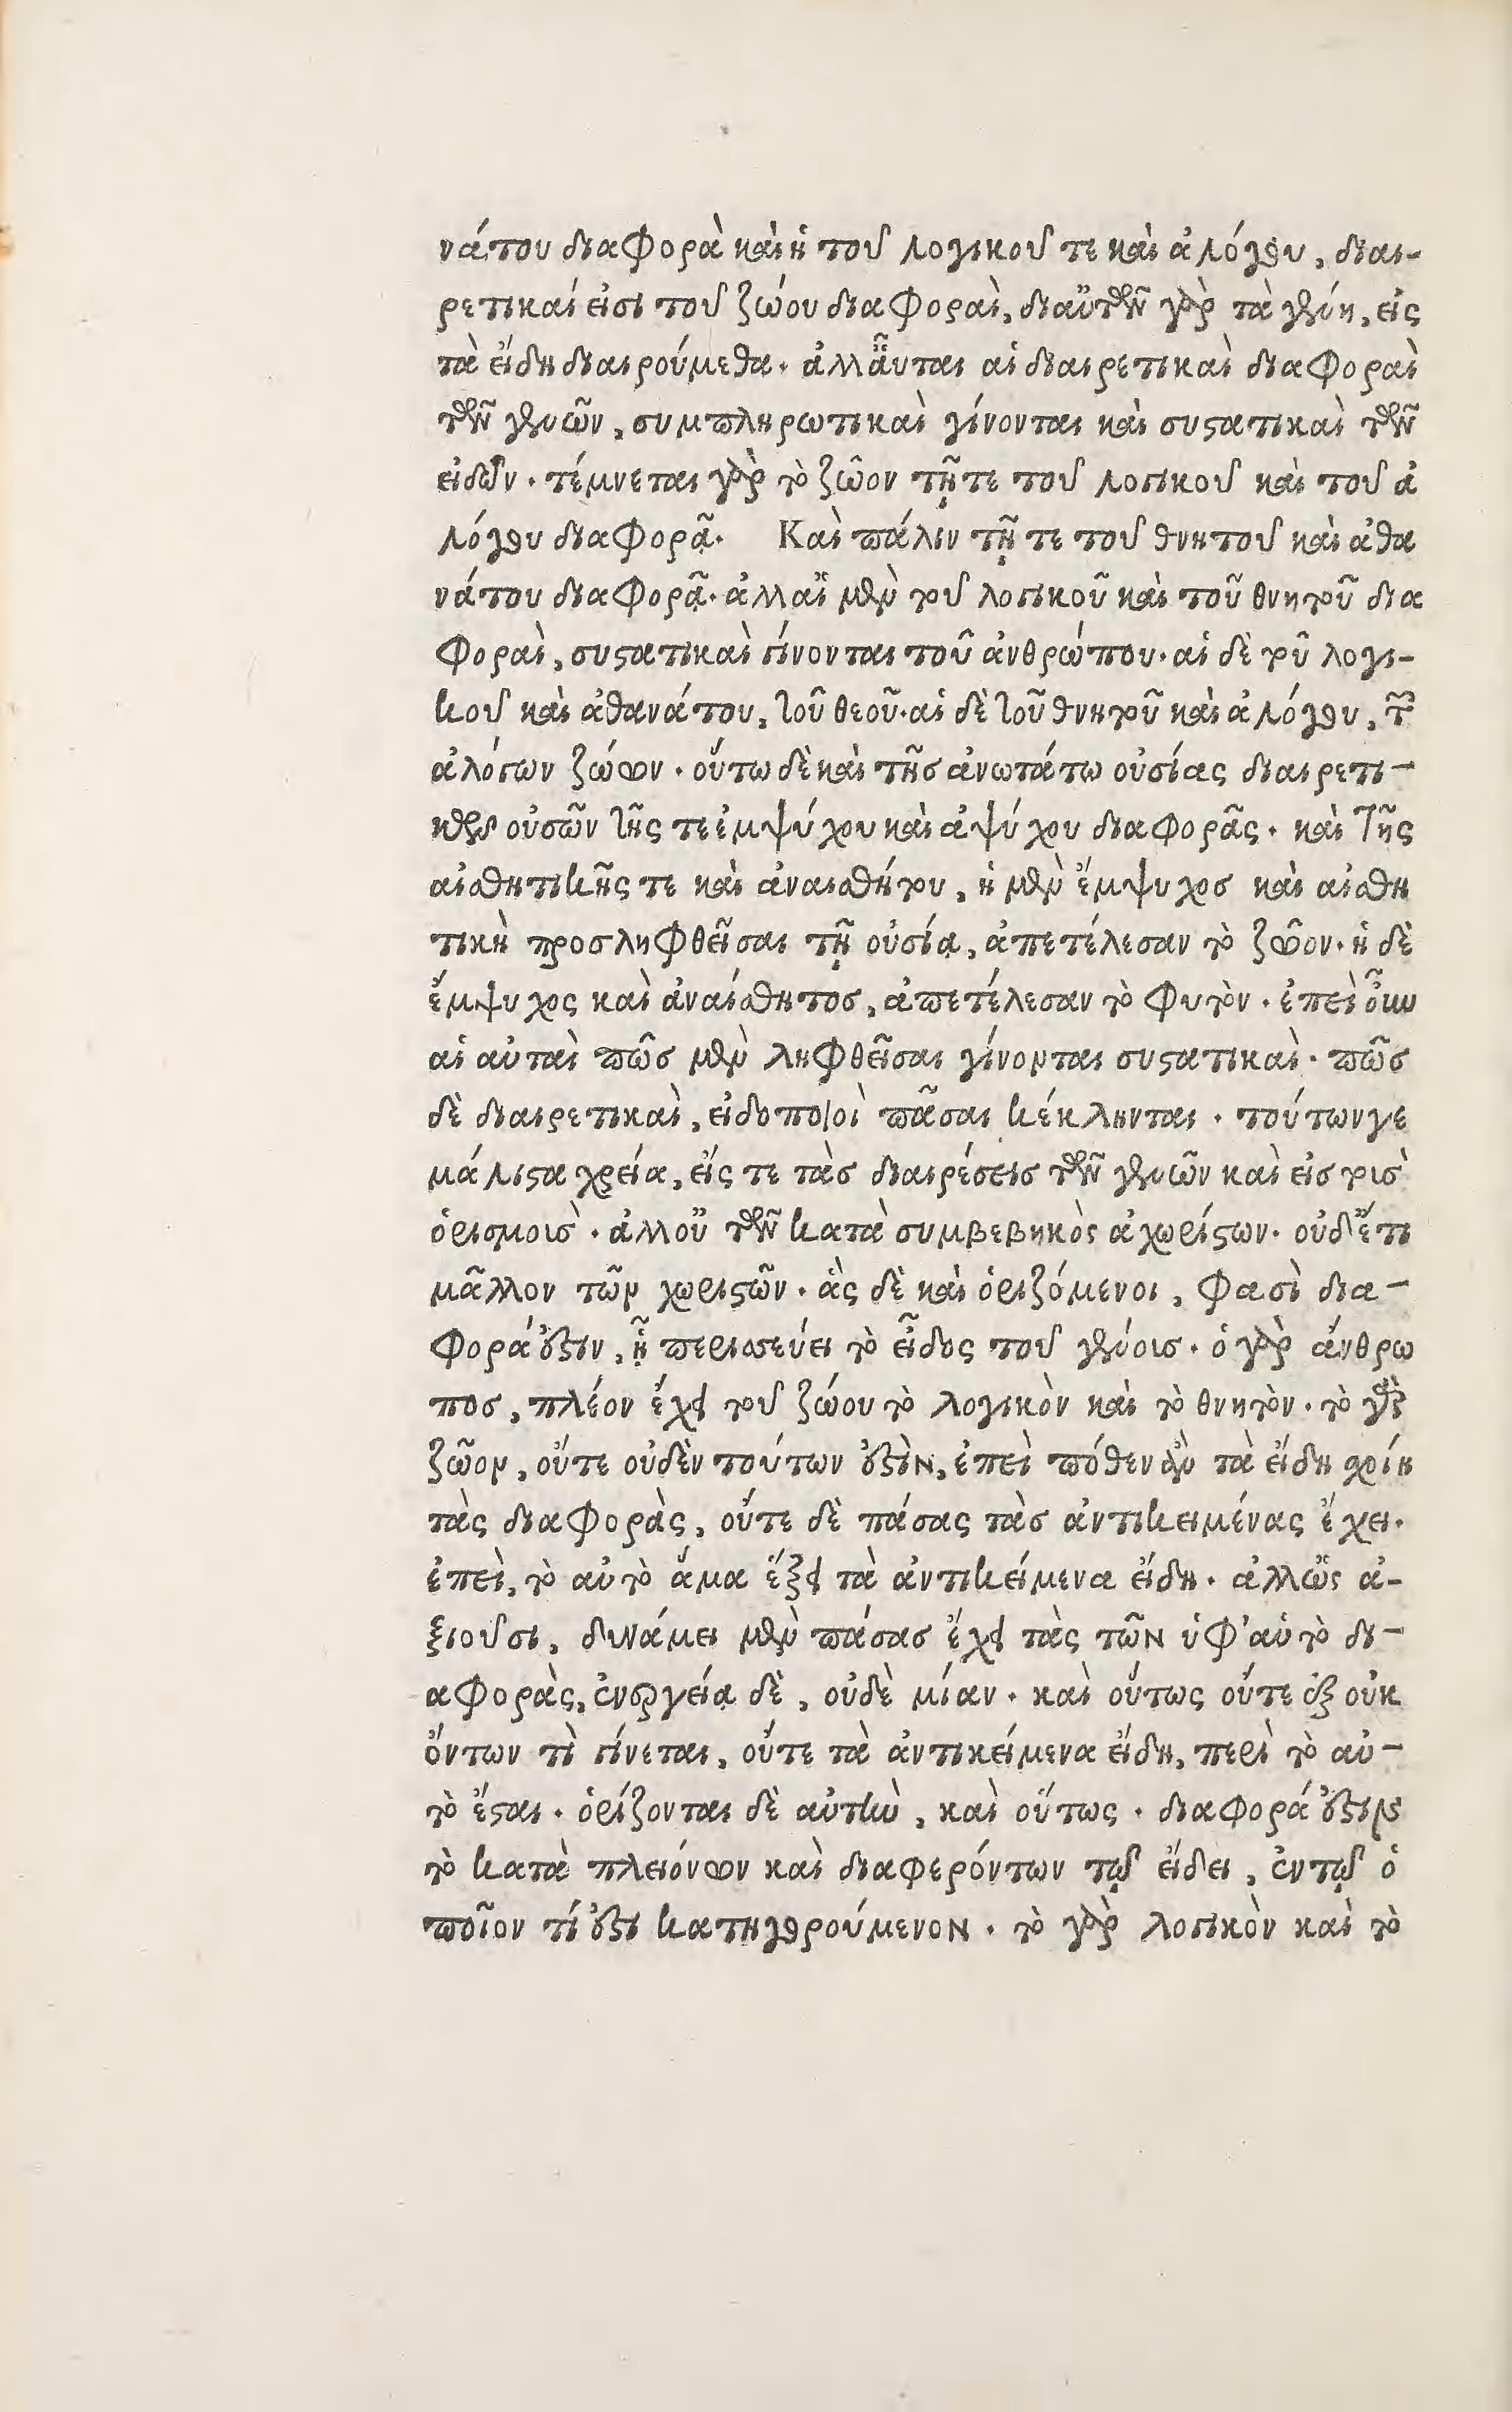 νάτου διαφορὰ καὶ ἡ τοῦ λογικοῦ τε καὶ ἀλόγου, διαι-
ρετικαί εἰσι τοῦ ζώου διαφοραὶ, διαὔτῶν γὰρ τὰ γένη, εἰς
τὰ εἴδη διαιρούμεθα· ἀλλἆυται αἱ διαιρετικαὶ διαφοραὶ
τῶν γενῶν, συμπληρωτικαὶ γίνονται καὶ συστατικαὶ τῶν
εἰδῶν· τέμνεται γὰρ τὸ ζῶον τῇ τε τοῦ λογικοῦ καὶ τοῦ ἀ
λόγου διαφορᾷ· Καὶ πάλιν τῇ τε τοῦ θνητοῦ καὶ ἀθα
νάτου διαφορᾷ· ἀλλαἵ μὲν τοῦ λογικοῦ καὶ τοῦ θνητοῦ δια
φοραὶ, συστατικαὶ γίνονται τοῦ ἀνθρώπου· αἱ δὲ τοῦ λογι-
κοῦ καὶ ἀθανάτου, τοῦ θεοῦ· αἱ δὲ τοῦ θνητοῦ καὶ ἀλόγου, τῶν
ἀλόγων ζώων· οὕτω δὲ καὶ τῆς ἀνωτάτω οὐσίας διαιρετι-
κῆς οὐσῶν τῆς τε ἐμψύχου καὶ ἀψύχου διαφορᾶς· καὶ τῆς
αἰσθητικῆς τε καὶ ἀναισθήτου, ἡ μὲν ἔμψυχος καὶ αἰσθη
τικὴ προσληφθεῖσαι τῇ οὐσίᾳ, ἀπετέλεσαν τὸ ζῶον· ἡ δὲ
ἔμψυχος καὶ ἀναίσθητος, ἀπετέλεσαν τὸ φυτὸν· ἐπεὶ οὖν
αἱ αὐταὶ πῶς μὲν ληφθεῖσαι γίνονται συστατικαὶ· πῶς
δὲ διαιρετικαὶ, εἰδοποιοὶ πᾶσαι κέκληνται· τούτων γε
μάλιστα χρεία, εἴς τε τὰς διαιρέσεις τῶν γενῶν καὶ εἰς τοὺς
ὁρισμοὺς· ἀλλοὔ τῶν κατὰ συμβεβηκὸς ἀχωρίστων· οὐδἔτι
μᾶλλον τῶν χωριστῶν· ἃς δὲ καὶ ὁριζόμενοι, φασὶ δια-
φορά ἐστιν, ᾗ περισσεύει τὸ εἶδος τοῦ γένους· ὁ γὰρ ἄνθρω
πος, πλέον ἔχει τοῦ ζώου τὸ λογικὸν καὶ τὸ θνητὸν· τὸ γὰρ
ζῶον, οὔτε οὐδὲν τούτων ἐστὶν, ἐπεὶ πόθεν ἂν τὰ εἴδη σχοίη
τὰς διαφορὰς, οὔτε δὲ πάσας τὰς ἀντικειμένας ἔχει·
ἐπεὶ, τὸ αὐτὸ ἅμα ἕξει τὰ ἀντικείμενα εἴδη· ἀλλὥς ἀ-
ξιοῦσι, δυνάμει μὲν πάσας ἔχει τὰς τῶν ὑφ'αὑτὸ δι-
αφορὰς, ἐνεργείᾳ δὲ, οὐδὲ μίαν· καὶ οὕτως οὔτε ἐξ οὐκ
ὄντων τὶ γίνεται, οὔτε τὰ ἀντικείμενα εἴδη, περὶ τὸ αὐ-
τὸ ἔσται· ὁρίζονται δὲ αὐτὴν, καὶ οὕτως· διαφορά ἐστιν
τὸ κατὰ πλειόνων καὶ διαφερόντων τῷ εἴδει, ἐν τῷ ὁ
ποῖον τί ἐστι κατηγορούμενον· τὸ γὰρ λογικὸν καὶ τὸ